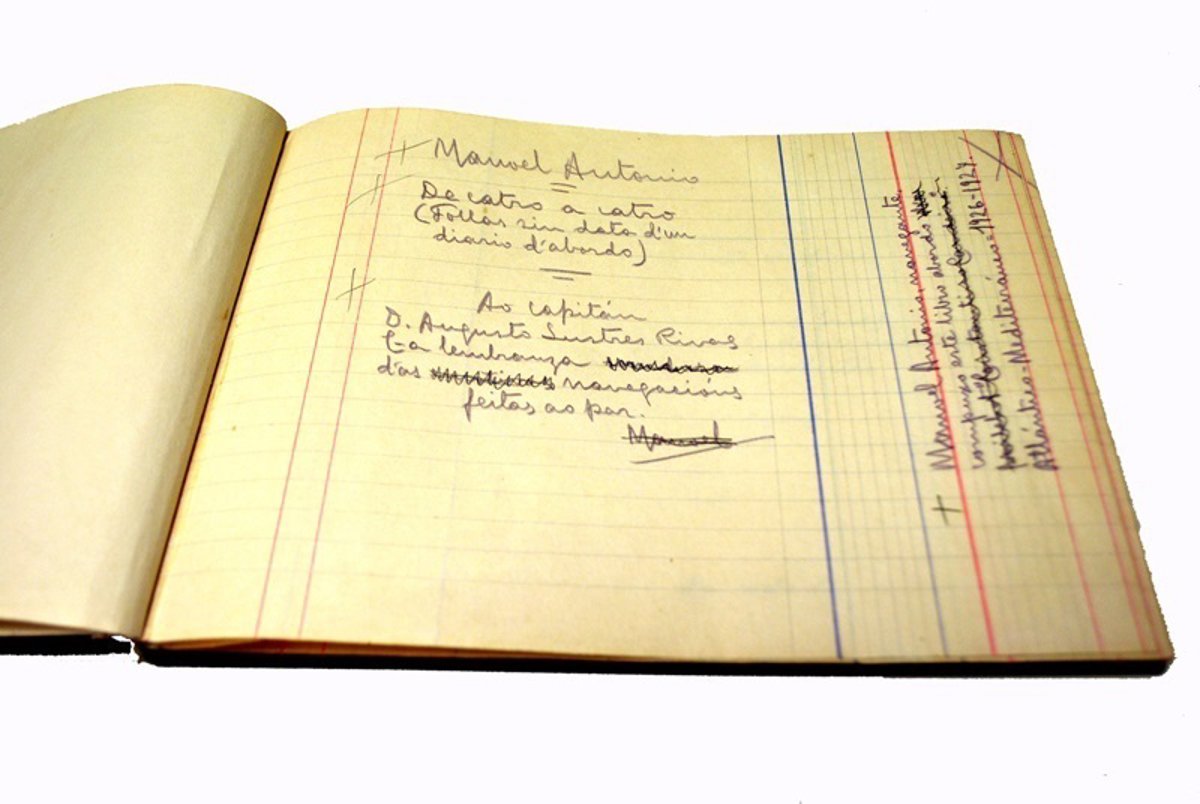 Manoel Antonio
De catro a catro
(Follas sin data d'un
diario d'abordo)
Ao capitán
D. Augusto Lustres Rivas
C-a lembranza
d'as navegacións
feitas ao par.
Manoel
Manuel Antonio, navegante,
compuxo este libro abordo
Atlántico-Mediterráneo-1926-1927.